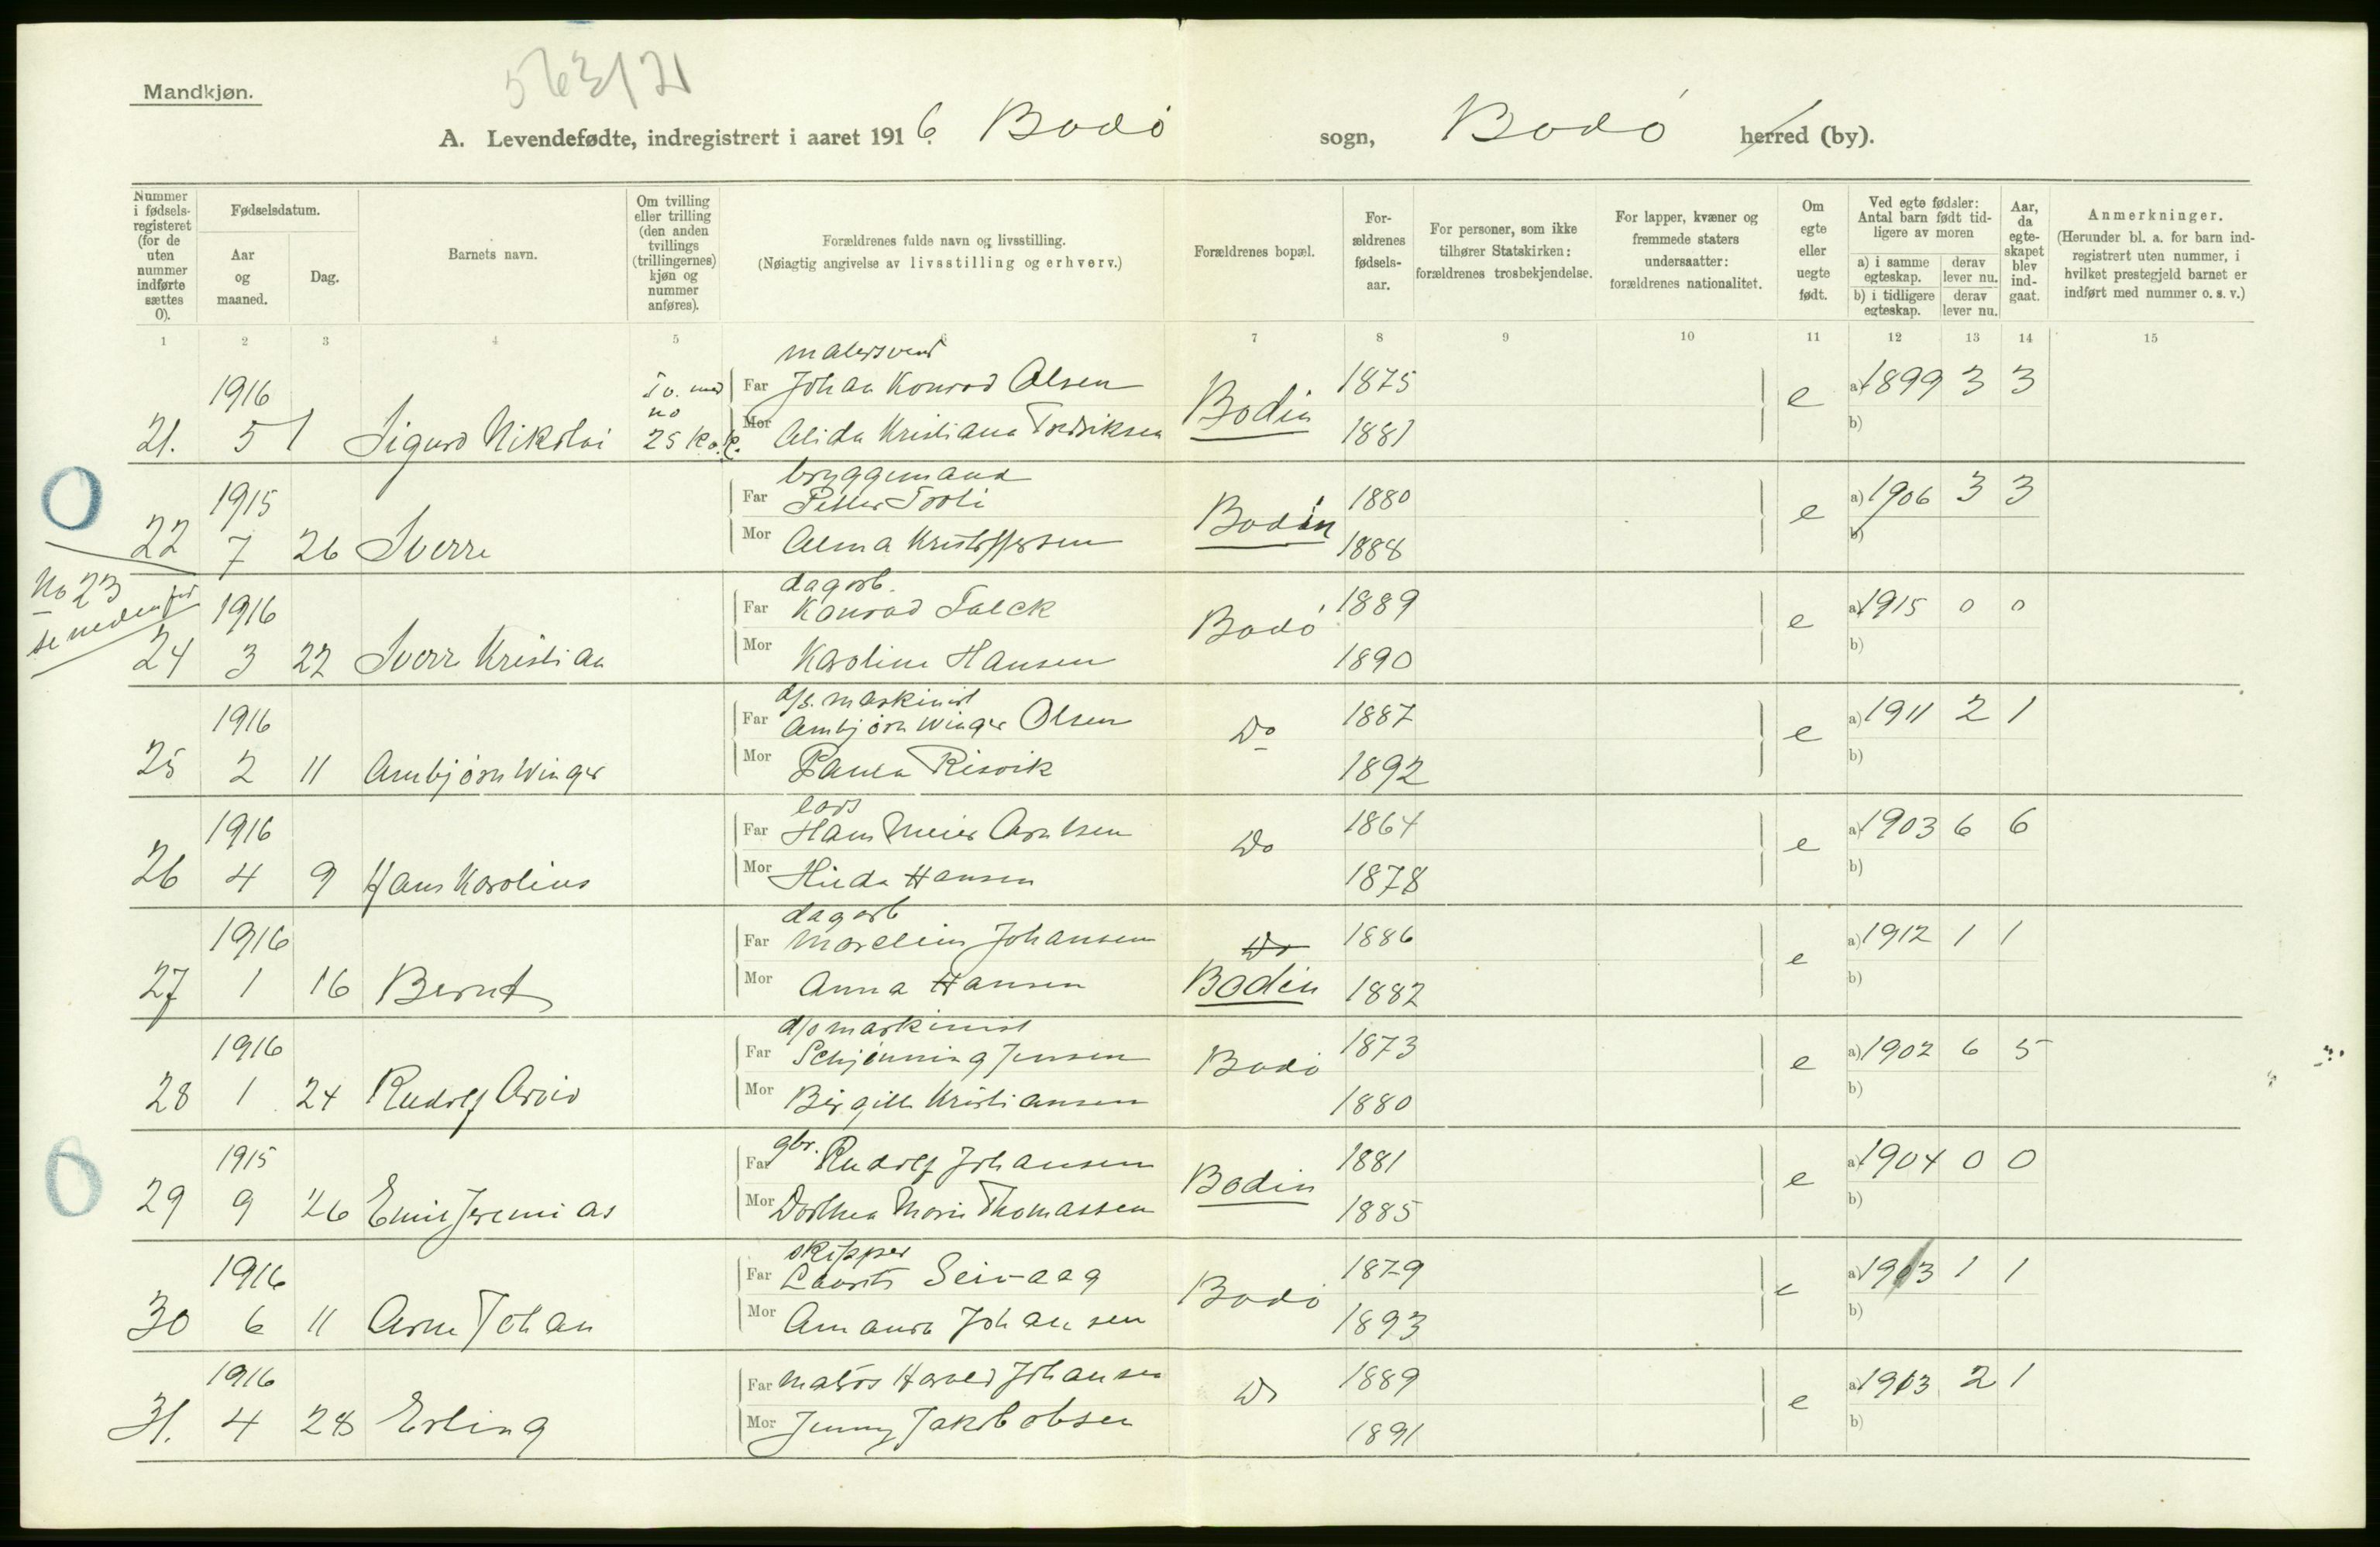 Mandkjøn.
563/21
A. Levendefødte, indregistrert i aaret 1916. Bodø sogn, Bodø herred (by).
Nummer i fødsels-registeret (for de uten nummer indførte sættes 0).
Fødselsdatum.
Aar og maaned.
Dag.
Barnets navn.
Om tvilling eller trilling (den anden tvillings (trillingernes) kjøn og nummer anføres).
Forældrenes fulde navn og livsstilling.
(Nøiagtig angivelse av livsstilling og erhverv.)
Forældrenes bopæl.
For-ældrenes fødsels-aar.
For personer, som ikke tilhører Statskirken: forældrenes trosbekjendelse.
For lapper, kvæner og fremmede staters undersaatter: forældrenes nationalitet.
Om egte eller uegte født.
Ved egte fødsler: Antal barn født tid-ligere av moren
a) i samme egteskap. derav lever nu.
b) i tidligere egteskap. derav lever nu.
Aar, da egte-skapet blev ind-gaat.
Anmerkninger.
(Herunder bl. a. for barn ind-registrert uten nummer, i hvilket prestegjeld barnet er indført med nummer o. s. v.)
1 2 3 4 5 7 8 9 10 11 12 13 14 15
malersvend
1916 Tv. med Far Johan Konrad Olsen Bodin 1875 e a) 1899 3 3
21. 5 1 Sigurd Nikolai no 25 K.k. Mor Alida Kristiana Fredriksen 1881 b)
bryggemand
0 1915 Far Petter Troli Bodin 1880 e a) 1906 3 3
22 7 26 Sverre Mor Alma Kristoffersen 1888 b)
No 23 se nedenfor
dagarb.
1916 Far Konrad Falck Bodø 1889 e a) 1915 0 0
24 3 22 Sverre Kristian Mor Karoline Hansen 1890 b)
d/s. maskinist
1916 Far Arnbjørn Winger Olsen Do 1887 e a) 1911 2 1
25 2 11 Arnbjørn Winger Mor Paula Risvik 1892 b)
lods
1916 Far Hans Meier Arntsen Do 1864 e a) 1903 6 6
26 4 9 Hans Karolius Mor Hilda Hansen 1878 b)
dagarb
1916 Far Marelius Johansen Do 1886 e a) 1912 1 1
27 1 16 Bernt Mor Anna Hansen Bodin 1882 b)
d/s maskinist
1916 Far Schjønning Jensen Bodø 1873 e a) 1902 6 5
28 1 24 Rudolf Arvid Mor Birgitte Kristiansen 1880 b)
0 1915 Far gbr. Rudolf Johansen Bodin 1881 e a) 1904 0 0
29 9 26 Emil Jeremias Mor Dorthea Marie Thomassen 1885 b)
skipper
1916 Far Laurits Seivaag Bodø 1879 e a) 1913 1 1
30 6 11 Arne Johan Mor Amanda Johansen 1893 b)
1916 Far matros Harald Johansen Do 1889 e a) 1913 2 1
31. 4 28 Erling Mor Jenny Jakobsen 1891 b)